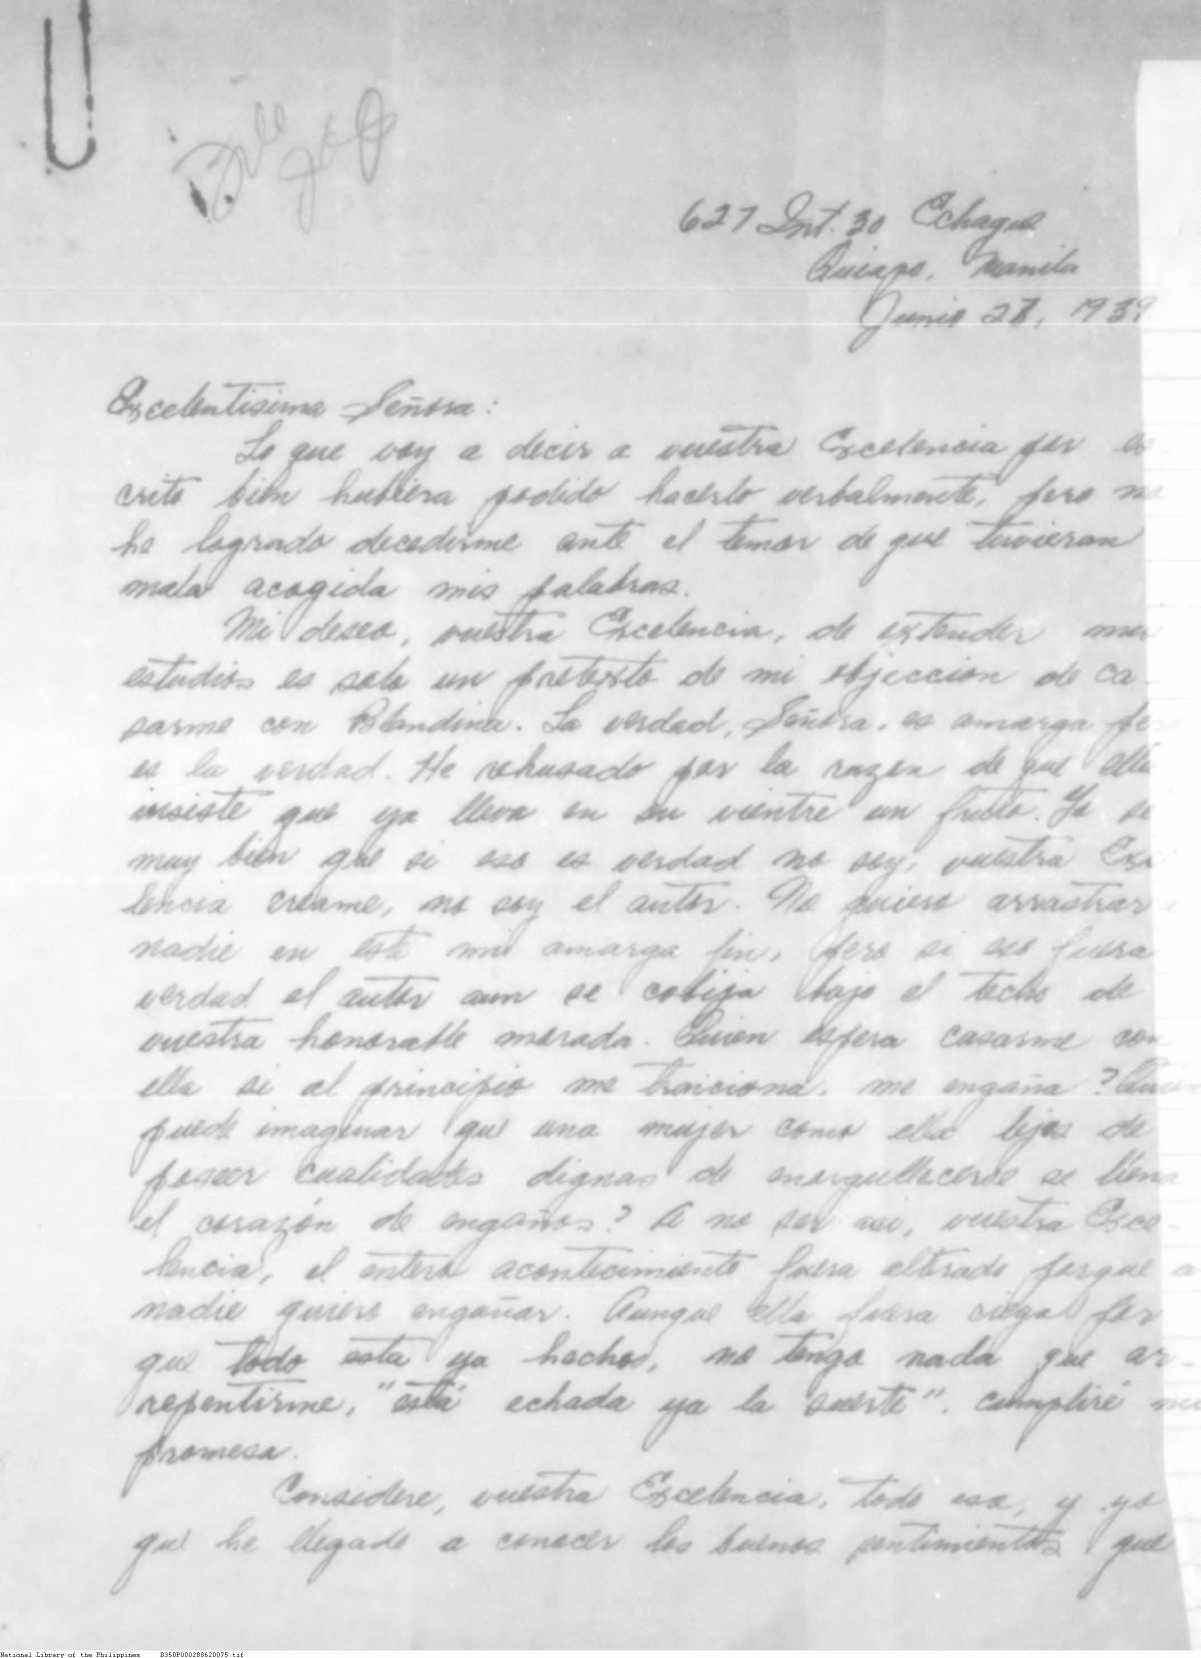 627 Int. 30 Echague
Quiapo, Manila
Junio 28, 1939
Excelentisima Señora:
Lo que voy a decir a vuestra Excelencia por es
crito bien hubiera podido hacerlo verbalmente, pero no
he logrado decedirme ante el temor de que tuvieran
mala acogida mis palabras.
Mi deseo, vuestra Excelencia, de extender mis
estudios es solo un pretexto de mi objeccion de ca-
sarme con Blandina. La verdad, Señora, es amarga pero
es la verdad. He rehusado por la razon de que ella
insiste que ya lleva en su vientre un fruto. Yo se
muy bien que si eso es verdad no soy, vuestra Exce
lencia creame, no soy el autor. No quiero arrastrar a
nadie en este mi amarga fin, pero si eso fuera
verdad el autor aun se cobija bajo el techo de
vuestra honorable morada. Quien espera casarme con
ella si al principio me traiciona, me engaña? Quien
puede imaginar que una mujer como ella lejos de
poseer cualidades dignas de enorgullecerse se llena
el corazón de engaños? A no ser asi, vuestra Exce-
lencia, el entero acontecimiento fuera alterado porque a
nadie quiero engañar. Aunque ella fuera ciega por
que todo esta ya hechos, no tengo nada que ar-
repentirme, "está echada ya la suerte". Cumpliré mi
promesa.
Considere, vuestra Excelencia, todo eso, y yo
que he llegado a conocer los buenos sentimientos que
National Library of the Philippines D350P000288620075.tif